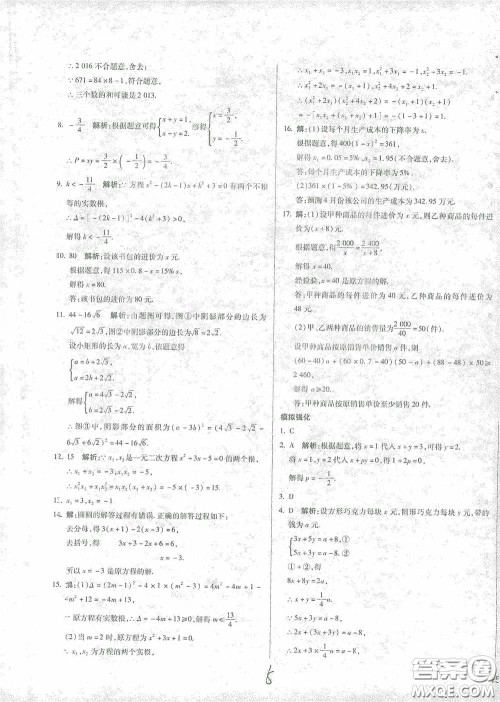 ∴2 016不合题意,舍去;
∵671=84×8-1,符合题意,
∴三个数的和可能是2 013.
8. -3/4 解析:根据题意可得{x+y=1, x-y=2. 解得{x=3/2, y=-1/2.
∴P=xy=3/2×(-1/2)=-3/4.
9. k<-11/4 解析:∵方程x²-(2k-1)x+k²+3=0有两个不相
等的实数根,
∴Δ=[-(2k-1)]²-4(k²+3)>0,
解得k<-11/4.
10. 80 解析:设该书包的进价为x元.
根据题意,得115×0.8-x=15%x.
解得x=80.
答:该书包的进价为80元.
11. 44-16√6 解析:由题图可得,图①中阴影部分的边长为
√12=2√3,图②中,阴影部分的边长为√8=2√2.
设小矩形的长为a,宽为b,依题意得
{a=b+2√3, a=2b+2√2.
解得{a=4√3-2√2, b=2√3-2√2.
∴图③中,阴影部分的面积为(a-3b)²=(4√3-2√2-
6√3+6√2)²=44-16√6.
12. 15
13. x₁=3,x₂=-1
14. 解:圆圆的解答过程有错误.正确的解答过程如下:
去分母,得3(x+1)-2(x-3)=6.
去括号,得3x+3-2x+6=6.
∴x=-3.
所以x=-3是原方程的解.
15. 解:(1)Δ=(2m-1)²-4×1×(m²-3)=4m²-4m+1-
4m²+12=-4m+13,
∵原方程有实数根,∴Δ=-4m+13≥0,解得m≤13/4.
(2)当m=2时,原方程为x²+3x+1=0.
∵x₁,x₂为方程的两个根,
∴x₁+x₂=-3,x₁x₂=1,x₁²+3x₁+1=0,x₂²+3x₂+1=0.
16. 解:(1)设每个月生产成本的下降率为x.
根据题意,得400(1-x)²=361,
解得x₁=0.05=5%,x₂=1.95(不符合题意,舍去).
答:每个月生产成本的下降率为5%.
(2)361×(1-5%)=342.95(万元).
答:预测4月份该公司的生产成本为342.95万元.
17. 解:(1)设甲种商品的每件进价为x元,则乙种商品的每件进
价为(x+8)元.
根据题意,得2 000/x=2 400/(x+8),
解得x=40.
经检验,x=40是原方程的解.
答:甲种商品的每件进价为40元,乙种商品的每件进价为
48元.
(2)甲,乙两种商品的销售量为2 000/40=50(件).
设甲种商品按原销售单价销售a件,则
(60-40)a+(60×0.7-40)(50-a)+(88-48)×50≥
2 460,
解得a≥20.
答:甲种商品按原销售单价至少销售20件.
模拟强化
1. C
2. A 解析:根据题意,将x=1代入x+y=3,可得y=2.
将x=1,y=2代入x+py=0,得1+2p=0,
解得p=-1/2.
3. D
4. D 解析:设方形巧克力每块x元,圆形巧克力每块y元,带的
钱为a元.
{3x+5y=a+8,①
5x+3y=a-8.②
①+②,得
8x+8y=2a,
∴x+y=1/4a.
∵5x+3y=a-8,
∴2x+(3x+3y)=a-8,
∴2x+3×1/4a=a-8,
5
答案圈
MXQE.COM